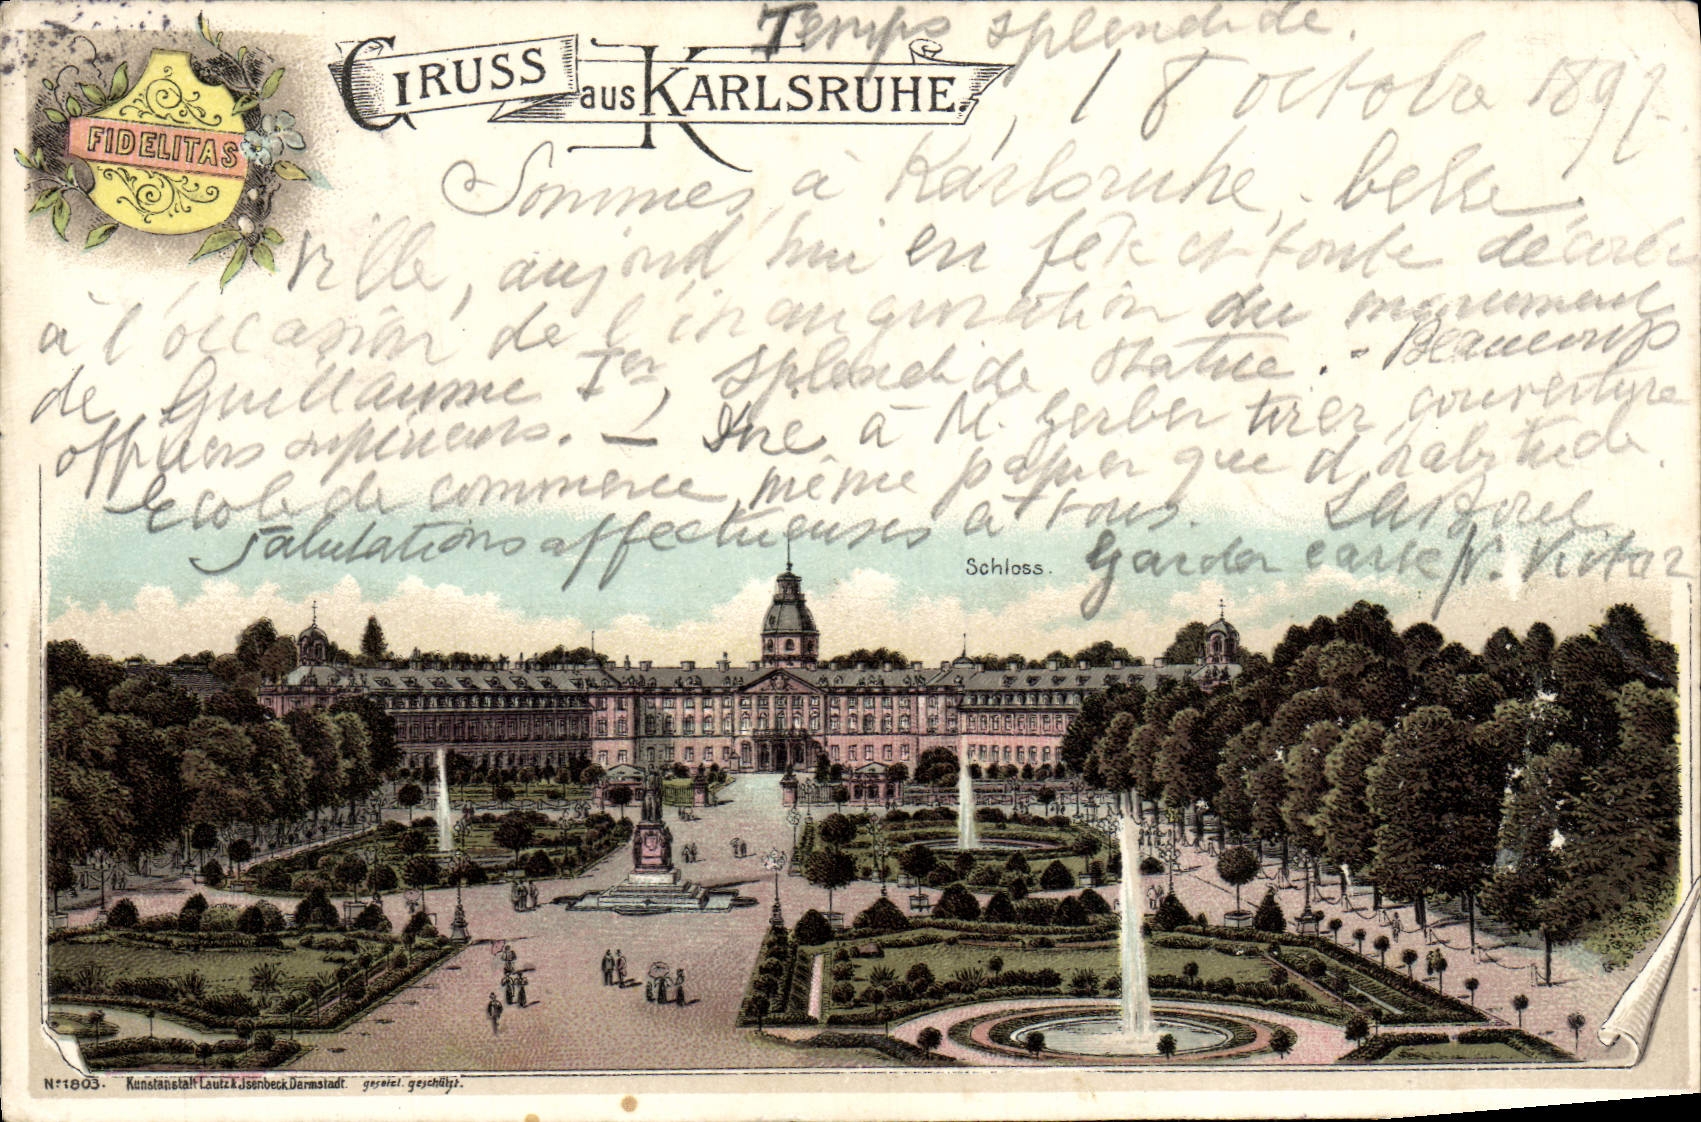 Temps splendide.
GRUSS aus KARLSRUHE.
FIDELITAS
, 18 octobre 1897.
Sommes à Karlsruhe, belle
ville, aujourd'hui en fête et toute décorée
à l'occasion de l'inauguration du monument
de Guillaume Ier, splendide statue. - Beaucoup
officiers supérieurs. — Dire à M. Gerber tirer couverture
Ecole de commerce même papier que d'habitude.
Salutations affectueuses à tous.
Garder carte
Schloss.
No 1803. Kunstanstalt Lautz & Jsenbeck, Darmstadt. gesetzl. geschützt.